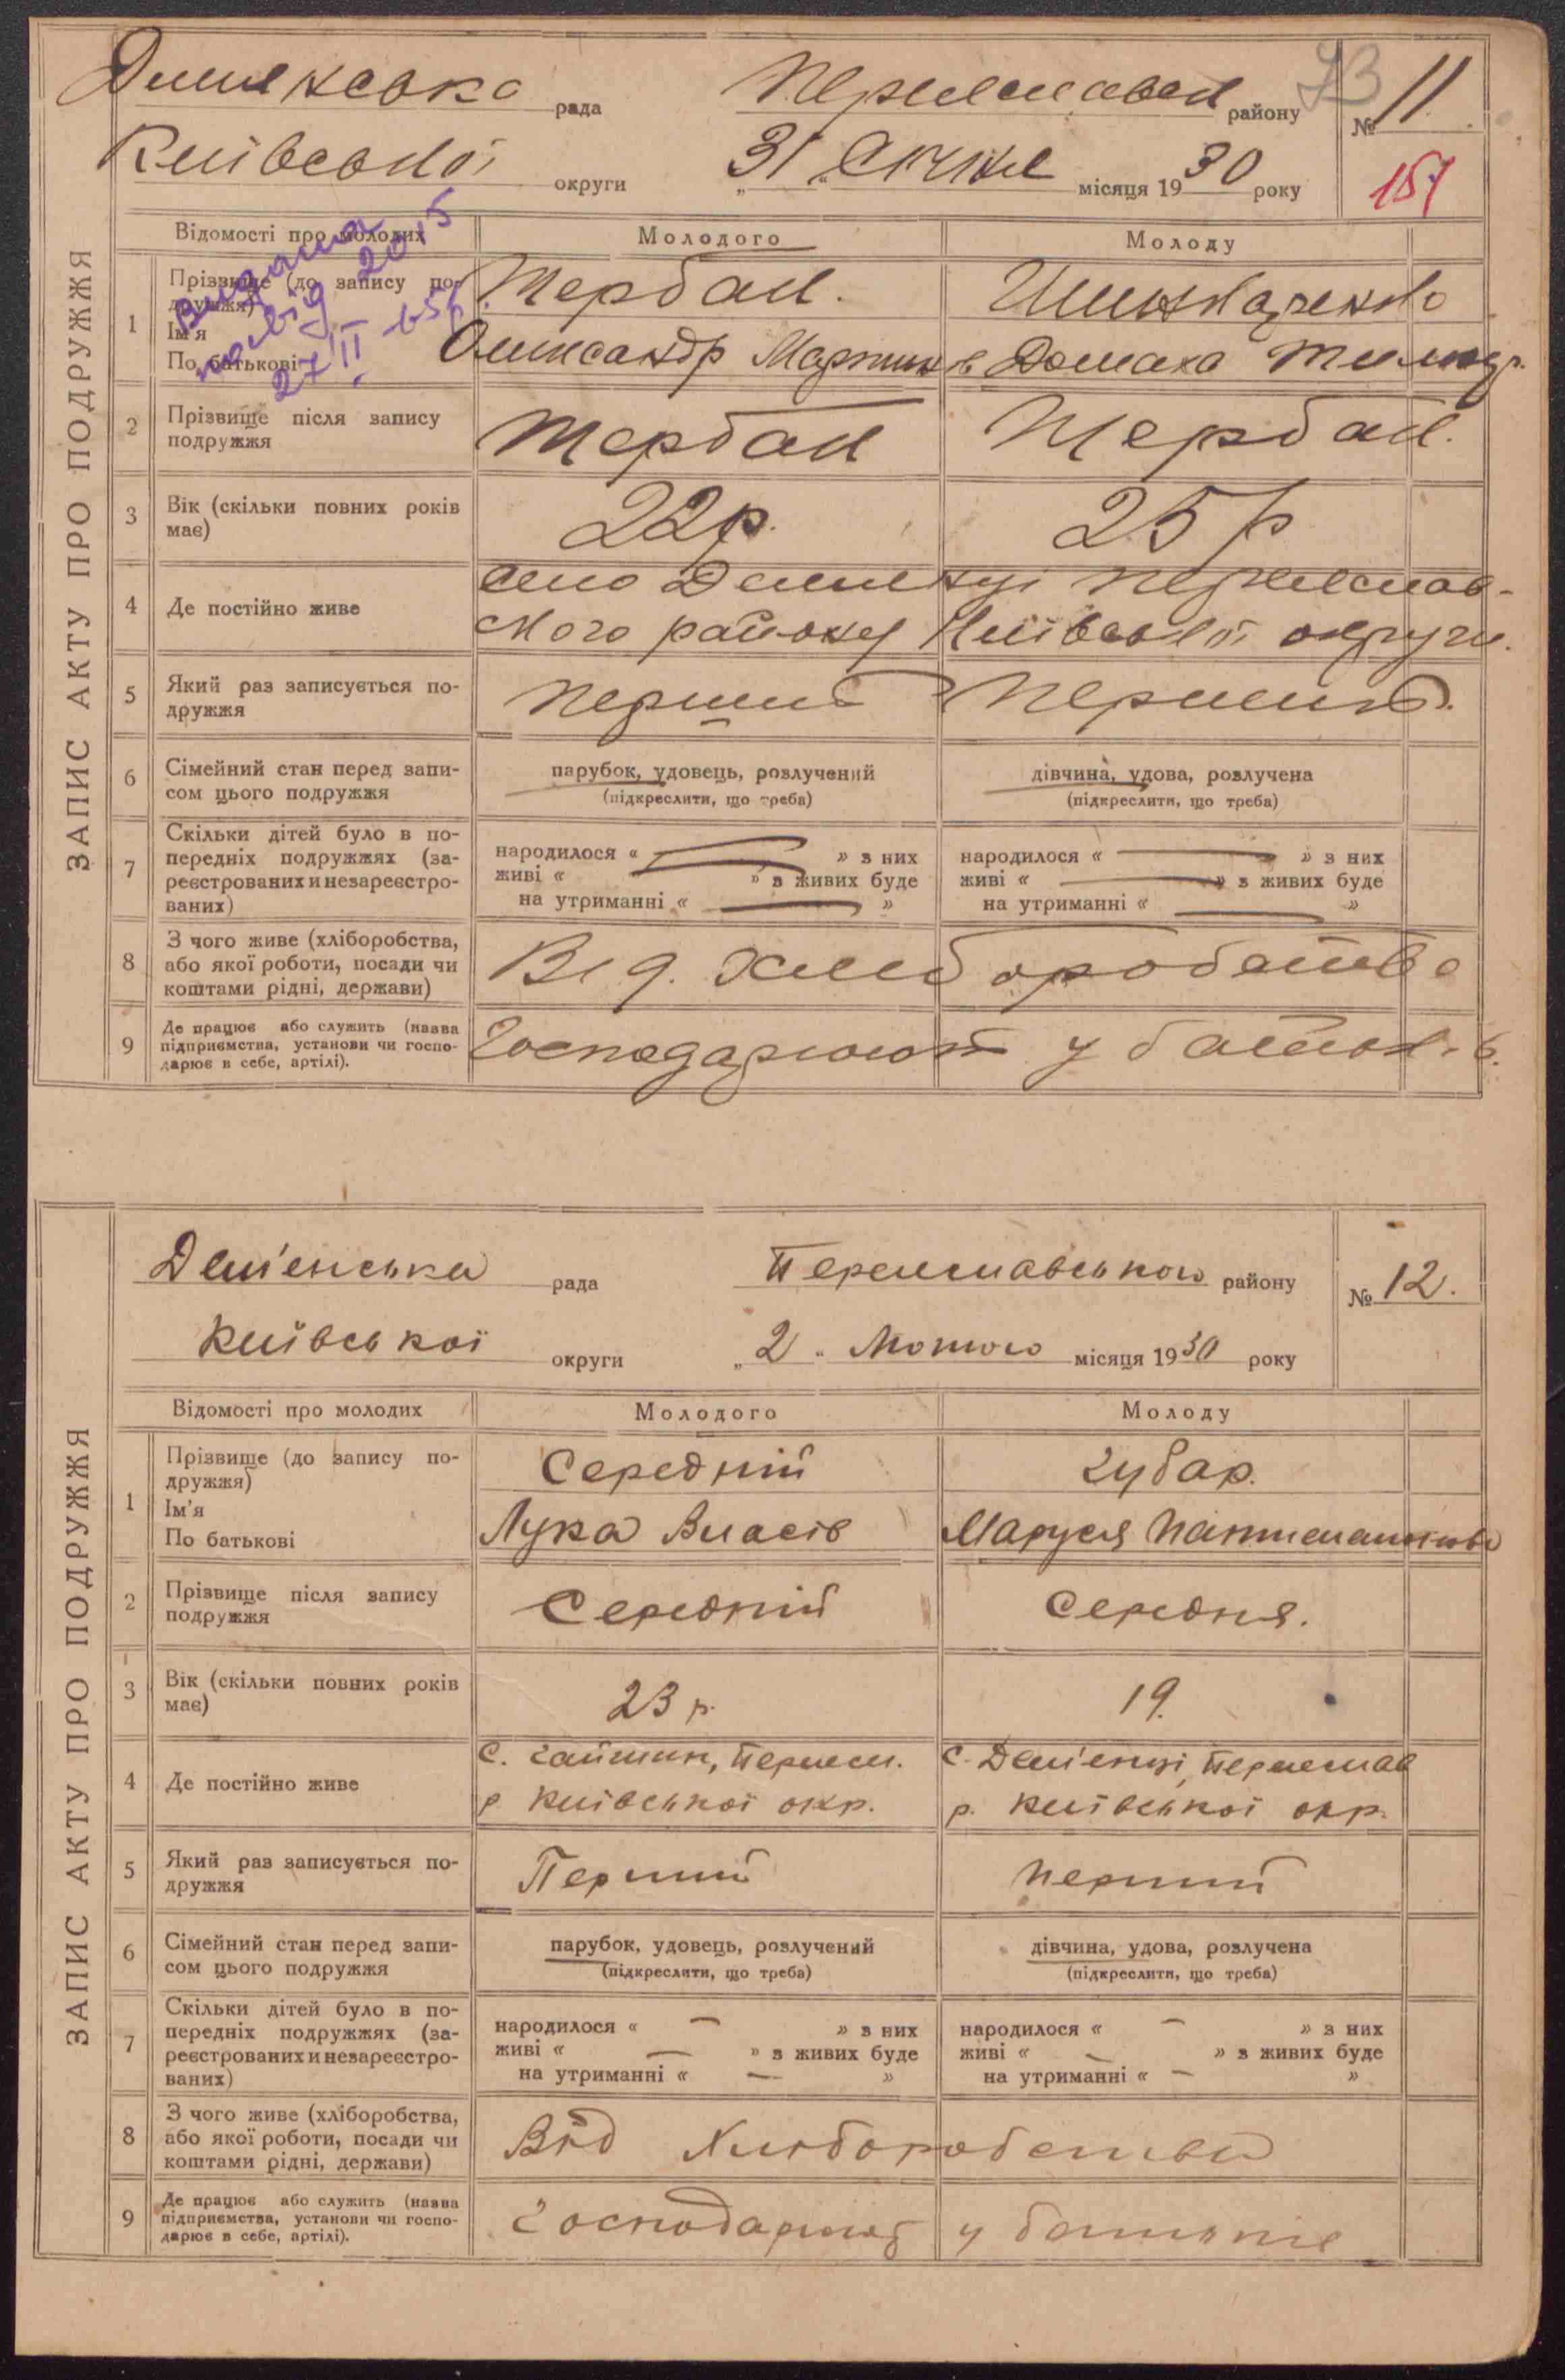 рада Переяслав району № 11
Київської округи „31“ Січня місяця 1930 року 157
ЗАПИС АКТУ ПРО ПОДРУЖЖЯ
Відомості про молодих Молодого Молоду
1 Прізвище (до запису подружжя) Щербак. Шинкаренко
Ім'я
По батькові Олександр Мартинів Домаха
2 Прізвище після запису подружжя Щербак Щербак.
3 Вік (скільки повних років має) 22 р. 25 р
4 Де постійно живе село Демянці Переяслав-
ського району Київської округи.
5 Який раз записується подружжя Перший Перший.
6 Сімейний стан перед записом цього подружжя парубок, удовець, розлучений дівчина, удова, розлучена
(підкреслити, що треба) (підкреслити, що треба)
7 Скільки дітей було в попередніх подружжях (зареєстрованих и незареєстрованих) народилося « — » з них народилося « — » з них
живі « — » з живих буде живі « — » з живих буде
на утриманні « — » на утриманні « — »
8 З чого живе (хліборобства, або якої роботи, посади чи коштами рідні, держави) Від. хліборобства
9 Де працює або служить (назва підприємства, установи чи господарює в себе, артілі). Господарюют у батьків.
Дем'енська рада Переяславського району № 12.
Київської округи „2“ Лютого місяця 1930 року
ЗАПИС АКТУ ПРО ПОДРУЖЖЯ
Відомості про молодих Молодого Молоду
1 Прізвище (до запису подружжя) Середній Губар.
Ім'я
По батькові Лука Власів Маруся
2 Прізвище після запису подружжя Середній Середня.
3 Вік (скільки повних років має) 23 р. 19.
4 Де постійно живе с. Гайшин, Переясл. с. Дем'енці, Переяслав
р Київської окр. р. Київської окр.
5 Який раз записується подружжя Перший Перший
6 Сімейний стан перед записом цього подружжя парубок, удовець, розлучений дівчина, удова, розлучена
(підкреслити, що треба) (підкреслити, що треба)
7 Скільки дітей було в попередніх подружжях (зареєстрованих и незареєстрованих) народилося « — » з них народилося « — » з них
живі « — » з живих буде живі « — » з живих буде
на утриманні « — » на утриманні « — »
8 З чого живе (хліборобства, або якої роботи, посади чи коштами рідні, держави) Від Хліборобства
9 Де працює або служить (назва підприємства, установи чи господарює в себе, артілі). Господарюют у батьків